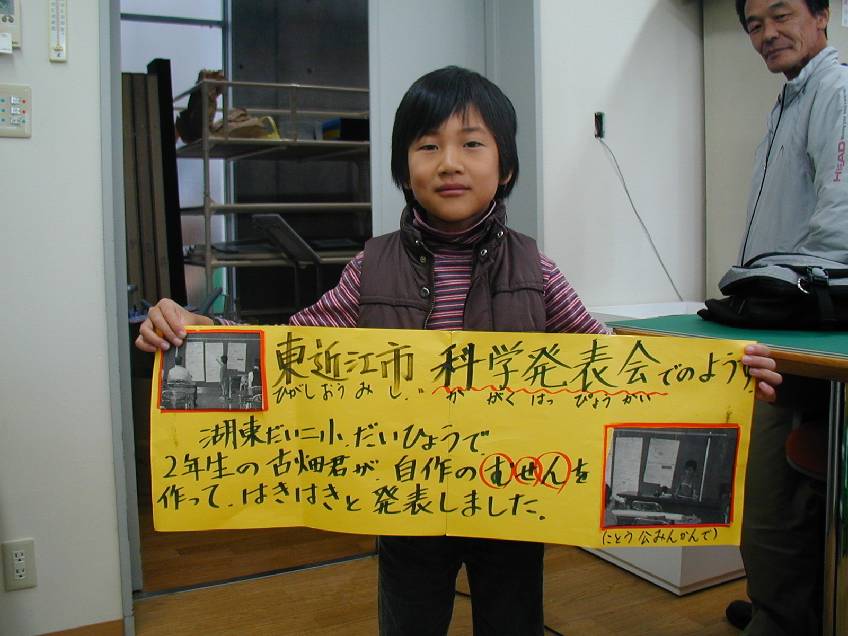 東近江市 科学発表会でのようす
ひがしおうみし かがくはっぴょうかい
湖東だい二小.だいひょうで、
2年生の古畑君が、自作のむせんを
作って、はきはきと発表しました。
(ことう公みんかんで)
HEAD